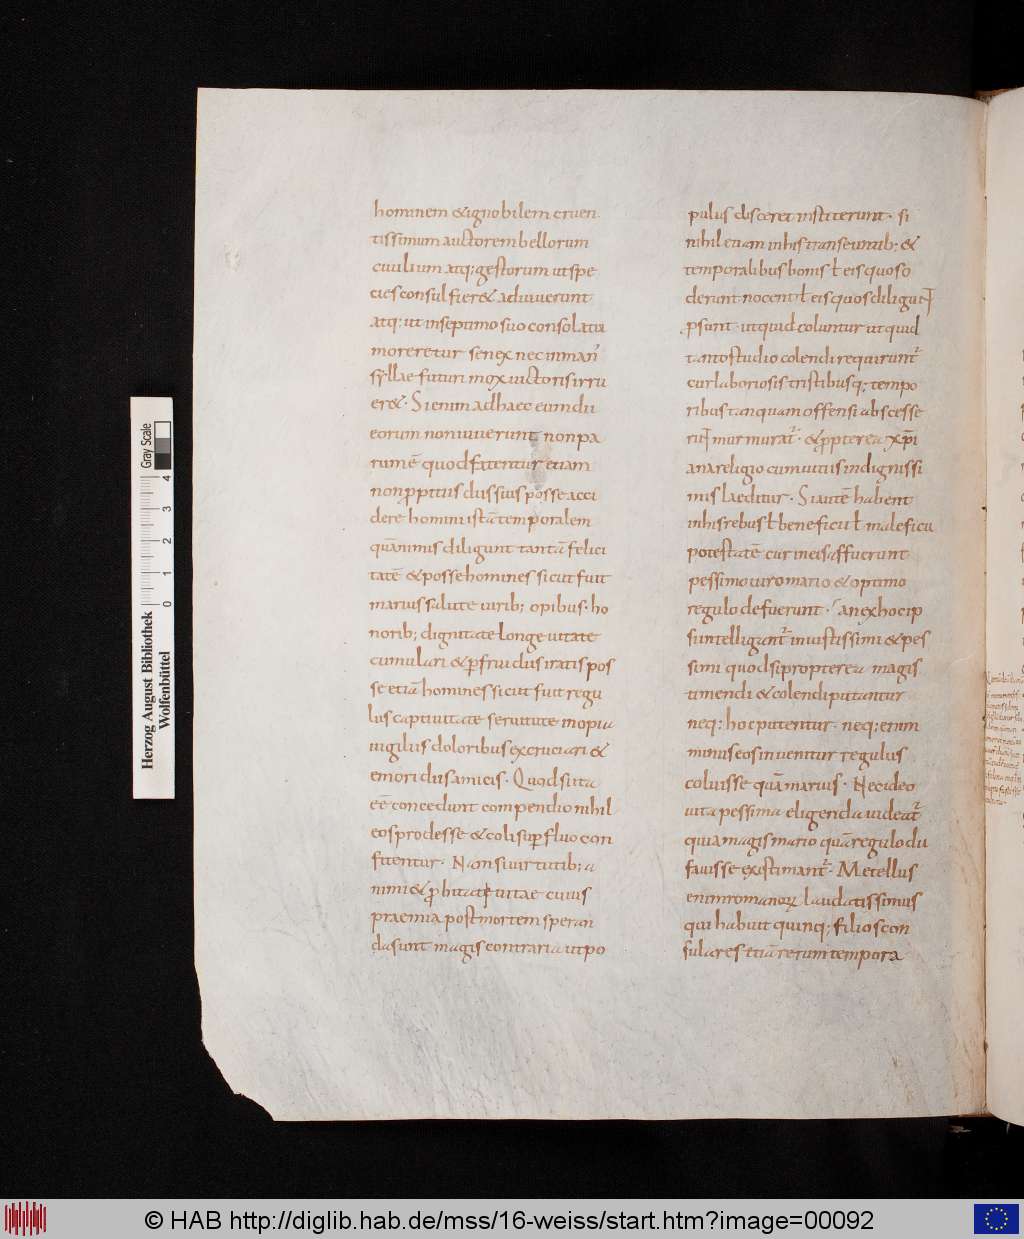 hominem & ignobilem cruen
tissimum auctorem bellorum
ciuilium atq; gestorum ut sep
cies consul fier& adiuuerunt
atq: ut in septimo suo consolatu
moreretur senex nec in man
syllae futuri mox uictoris irru
er&· Si enim ad haec eum dii
eorum non iuuerunt non pa
rum ē quod fatentur etiam
non ppitiis diis suis posse acci
dere homini istā temporalem
quā nimis diligunt tantā felici
tatē & posse homines sicut fuit
marius salute uirib; opibus· ho
norib; dignitate longeuitate
cumulari & pfrui diis iratis pos
se etiā homines sicut fuit regu
lus captiuitate seruitute inopia
uigiliis doloribus excruciari &
emori diis amicis· Quod si ita
eē concedunt compendio nihil
eos prodesse & coli supfluo con
fitentur· Nam si uirtutib; a
nimi & phitati uitae cuius
praemia post mortem speran
da sunt magis contraria ut po
pulus disceret institerunt· si
nihil etiam in his transeuntib; &
temporalibus bonis ł eis quos o
derunt nocent ł eis quos diligunt
psunt· ut quid coluntur ut quid
tanto studio colendi requirunt
cur laboriosis tristibusq; tempo
ribus tanquam offensi abscesse
rint murmurat· & ppterea xpi
ana religio cum uitiis indignissi
mis laeditur· Si autē habent
in his rebus ł beneficii ł maleficii
potestatē cur in eis affuerunt
pessimo uiro mario & optimo
regulo defuerunt· an ex hoc ip
si intelligunt iniustissimi & pes
simi quod si propterea magis
timendi & colendi putantur
neq: hoc putentur· neq; enim
minus eos inuenitur regulus
coluisse quā marius· Nec ideo
uita pessima eligenda uideat
quia magis mario quā regulo dii
fauisse existimant· Metellus
enim romanoꝝ laudatissimus
qui habuit quinq; filios con
sulares etiā rerum tempora
Herzog August Bibliothek
Wolfenbüttel
Gray Scale
0 1 2 3 4
© HAB http://diglib.hab.de/mss/16-weiss/start.htm?image=00092